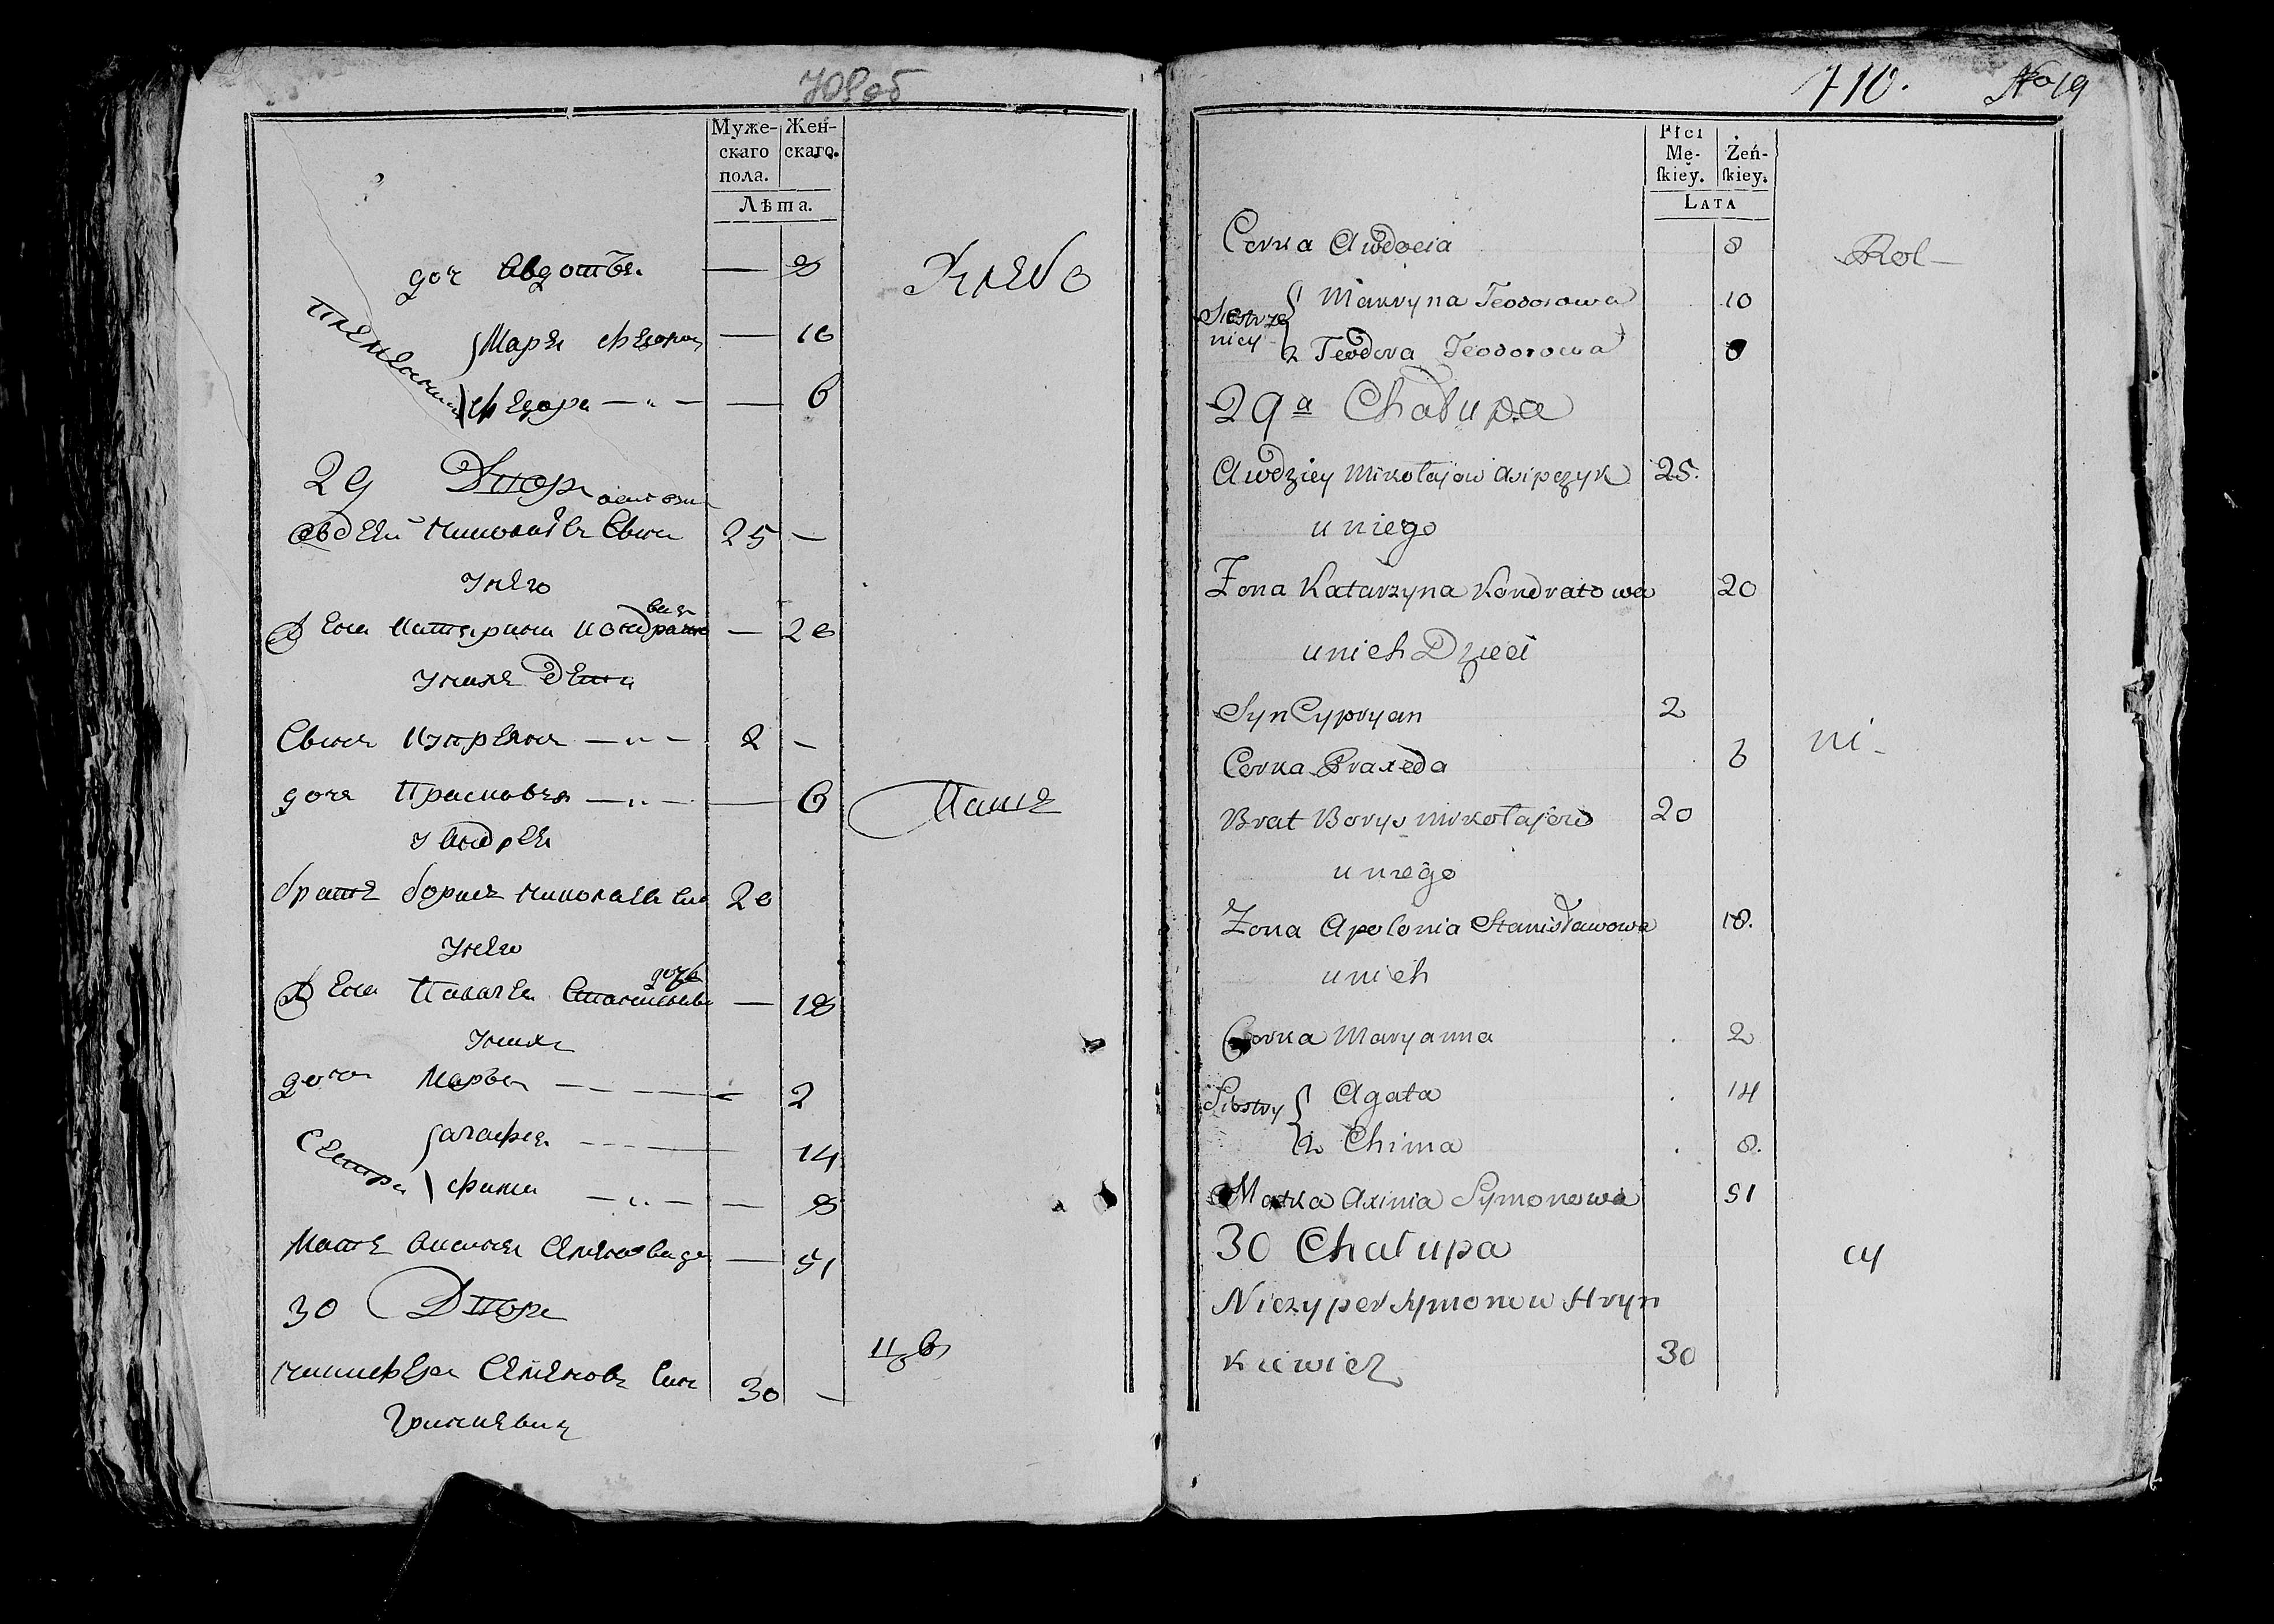 Муже-
скаго
пола.
Жен-
скаго.
Лѣта.
доч Авдотья — 8
Хлебо
Племянни
Марья Федоров — 10
Федора — 6
29 Дворъ
Авдей Николаевъ Сынъ 25 —
Унего
Жена Катерина Кондрать — 20
Унихъ Дети
Сынъ Куприянъ — 2 —
дочь Прасковья — 6
Пашц
У Андрея
братъ борисъ Николаевъ 20
Унего
дочь
Жена Палагея — 18
Унихъ
дочь Марья — 2
Сестры
агафья — 14
Фима — 8
Мать Аксинья Семенова — 51
30 Дворъ
цовъ
Никифоръ Семеновъ Сынъ 30 —
Гринкевичъ
710. No 19
Płci
Mę-
ſkiey.
Żeń-
ſkiey.
LATA
Corka Awdocia 8
Rol-
Siestrze
nicy
Mawryna Teodorowa 10
2 Teodora Teodorowa
29a Chałupa
Awdziey Mikołajow Asipczyk 25.
u niego
Zona Katarzyna Kondratowa 20
unich Dzieci
Syn Cypryan 2
ni-
Corka Praxeda 6
Brat Borys Mikołajow 20
u niego
Zona Apolonia Stanisławowa 18.
unich
Corka Maryanna 2
Siostry
Agata 14
2 Chima 8.
Matka Axinia Symonowa 51
30 Chałupa
cy
Niczyper Symonow Hryn
kiewicz 30